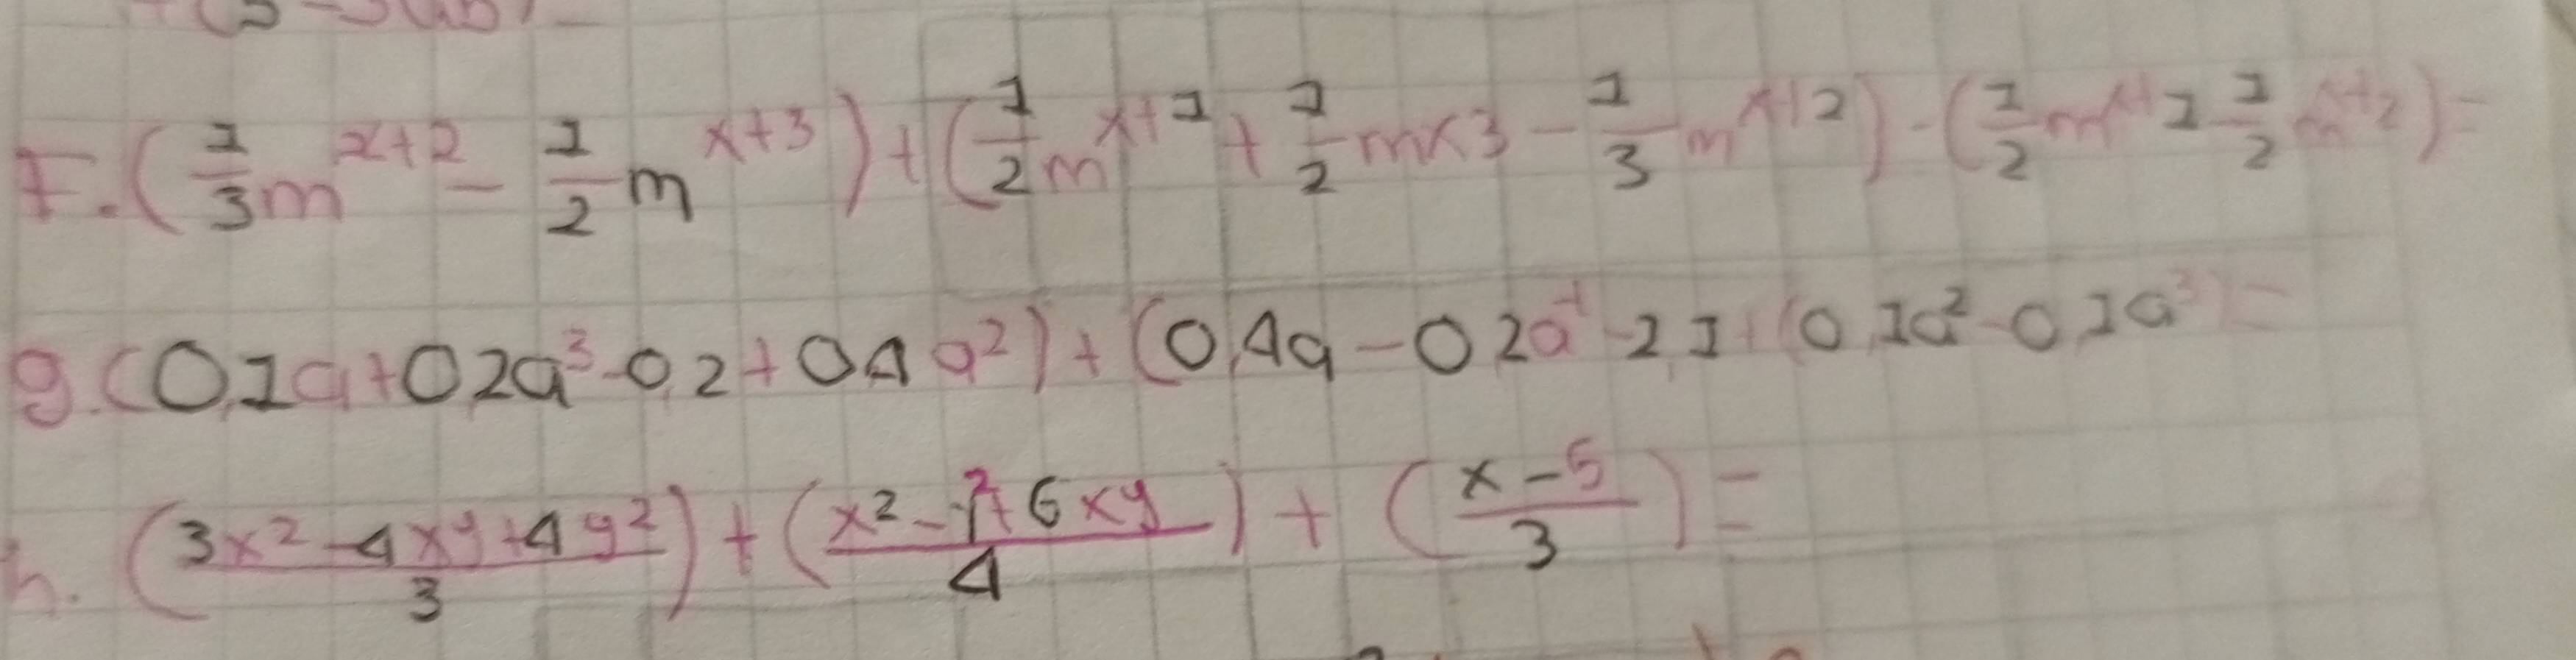 F. (1/3 m^x+2 - 1/2 m^x+3) + (1/2 m^x+1 + 1/2 mx3 - 1/3 m^x+2) - (1/2 m^x+1 1/2 m^x+2) =
g. (0,1a + 0,2a^3 - 0,2 + 0,4 a^2) + (0,4a - 0,2a - 2,1 + (0,1a^2 - 0,1a^3) =
h. (3x^2 - 4xy + 4y^2 / 3) + (x^2 - y^2 + 6xy / 4) + (x - 5 / 3) =